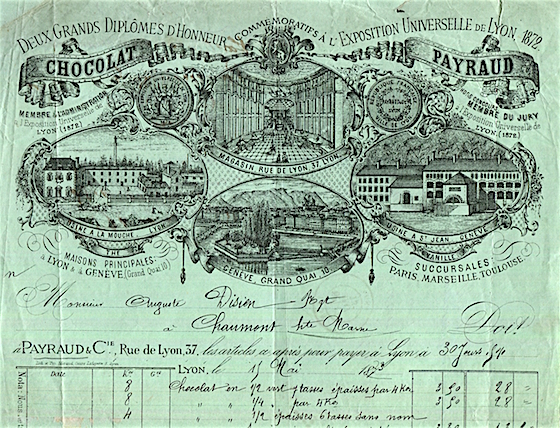 DEUX GRANDS DIPLÔMES D'HONNEUR COMMÉMORATIFS À L'EXPOSITION UNIVERSELLE DE LYON, 1872
CHOCOLAT PAYRAUD
MEMBRE À L'ADMINISTRATION
à l'Exposition Universelle de
LYON (1872)
MEMBRE DU JURY
Exposition Universelle de
LYON, (1872)
MAGASIN RUE DE LYON, 37, LYON
USINE A LA MOUCHE LYON
THÉ
USINE A ST JEAN GENÈVE
VANILLE
GENÈVE, GRAND QUAI, 10
MAISONS PRINCIPALES:
à LYON & à GENÈVE, (Grand Quai, 10)
SUCCURSALES:
PARIS, MARSEILLE, TOULOUSE
Monsieur Auguste Disien Mgt
à Chaumont Hte Marne Doit
à PAYRAUD & CIE, Rue de Lyon, 37, les articles ci-après pour payer à Lyon à 30 Jours
LYON, le 15 Mai 1873
Nota DATE
8 Chocolat en 1/2 tasses épaisses par 4 Ko 3 50 28 "
8 " " 1/4 " par 4 Ko 3 50 28 "
4 " " 1/2 épaisses 6 tasses sans nom